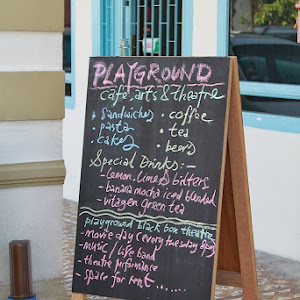 PLAYGROUND
cafe, arts & theatre
• sandwiches • coffee
• pasta • tea
• cakes • beers
Special Drinks:-
- lemon, lime & bitters
- banana mocha iced blended
- vitagen green tea
playground black box theatre
- movie day (every tuesday 8pm)
- music / live band
- theatre performance
- space for rent ......